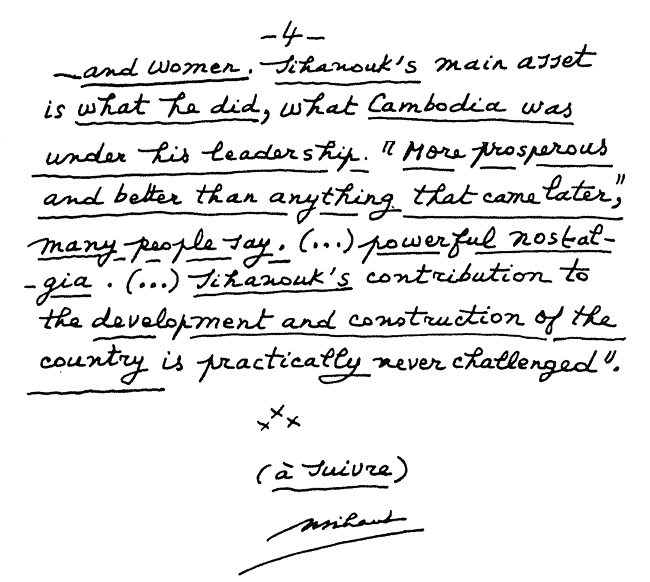 -4-
_and women. Sihanouk's main asset
is what he did, what Cambodia was
under his leadership. "More prosperous
and better than anything that came later,"
many people say. (...) powerful nostal-
-gia. (...) Sihanouk's contribution to
the development and construction of the
country is practically never challenged".
xxx
(à suivre)